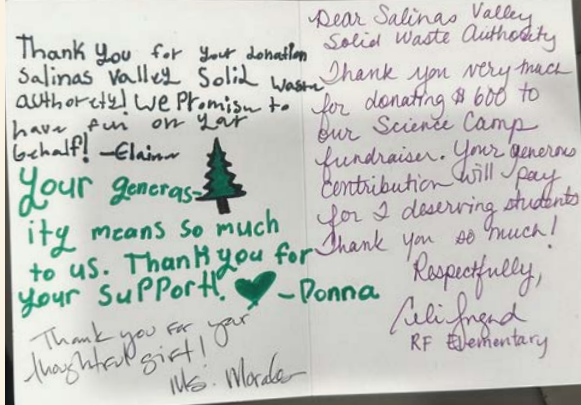 Thank you for your donation
Salinas Valley Solid Waste
authorety! We Promise to
have fun on your
behalf! -Elaine
Your generas-
ity means so much
to us. Thank you for
your Support! -Donna
Thank you for your
thoughtful gift!
Ms. Morales
Dear Salinas Valley
Solid Waste Authority
Thank you very much
for donating $600 to
our Science Camp
fundraiser. Your generous
contribution will pay
for 2 deserving students
Thank you so much!
Respectfully,
RF Elementary